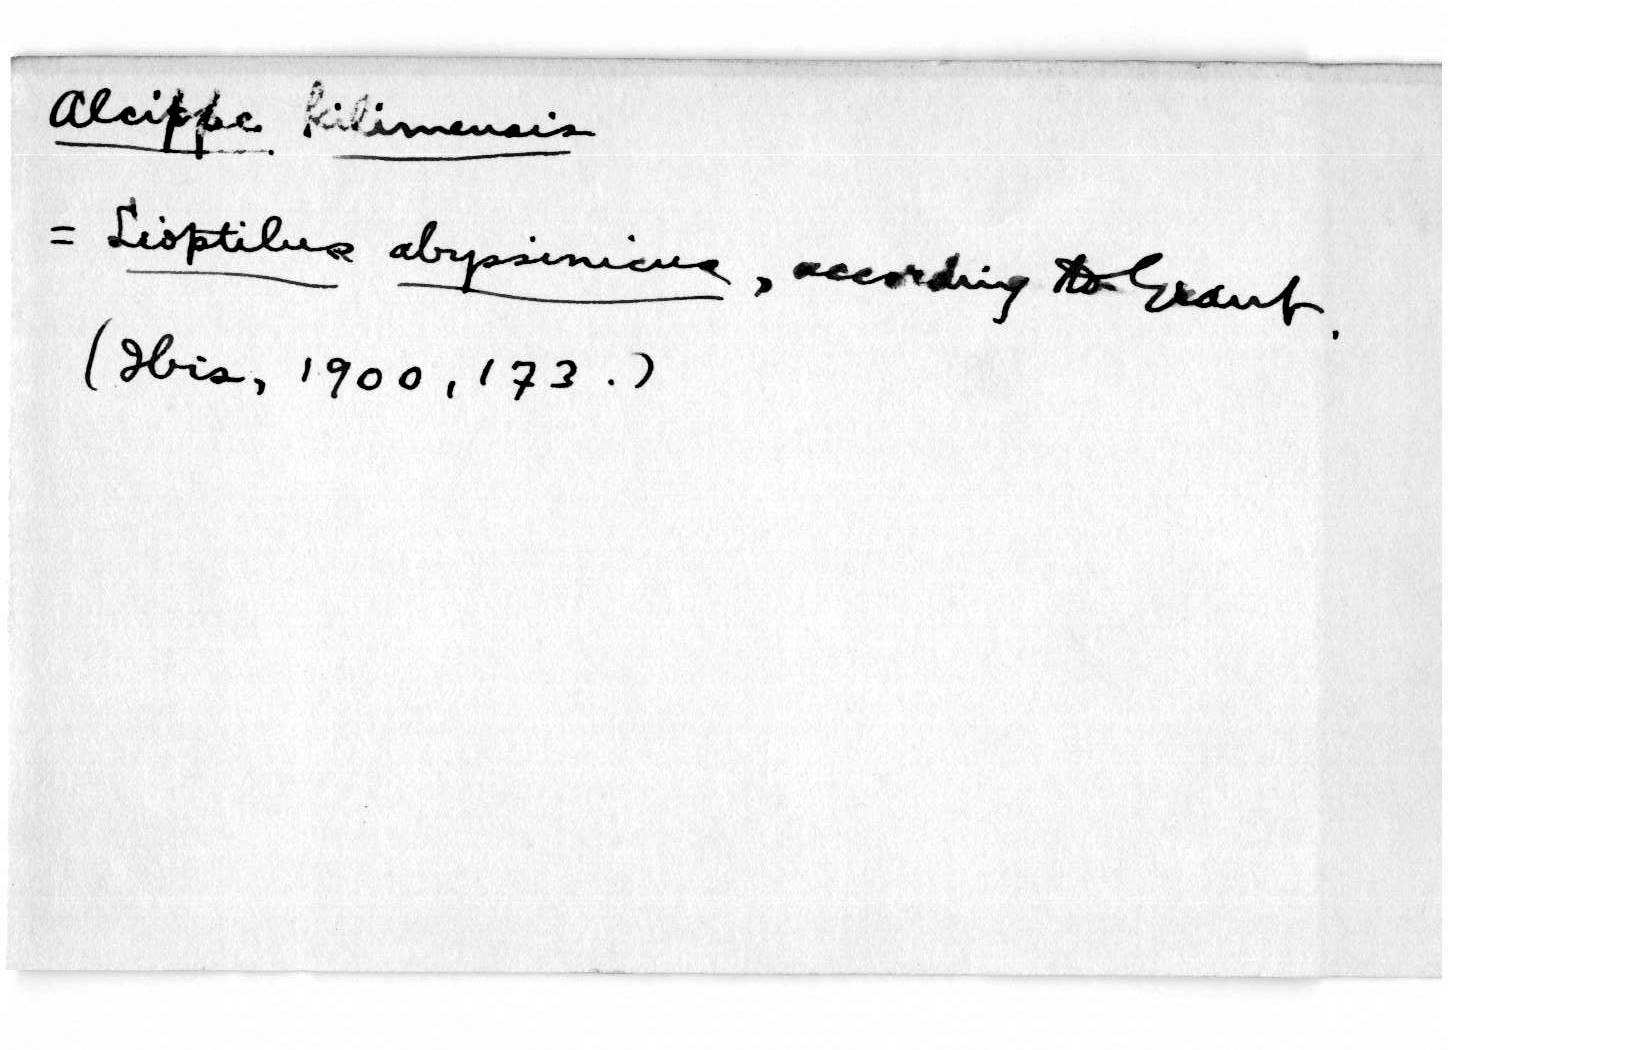 Alcippe kilimensis
= Lioptilus abyssinicus, according to Grant.
(Ibis, 1900, 173.)